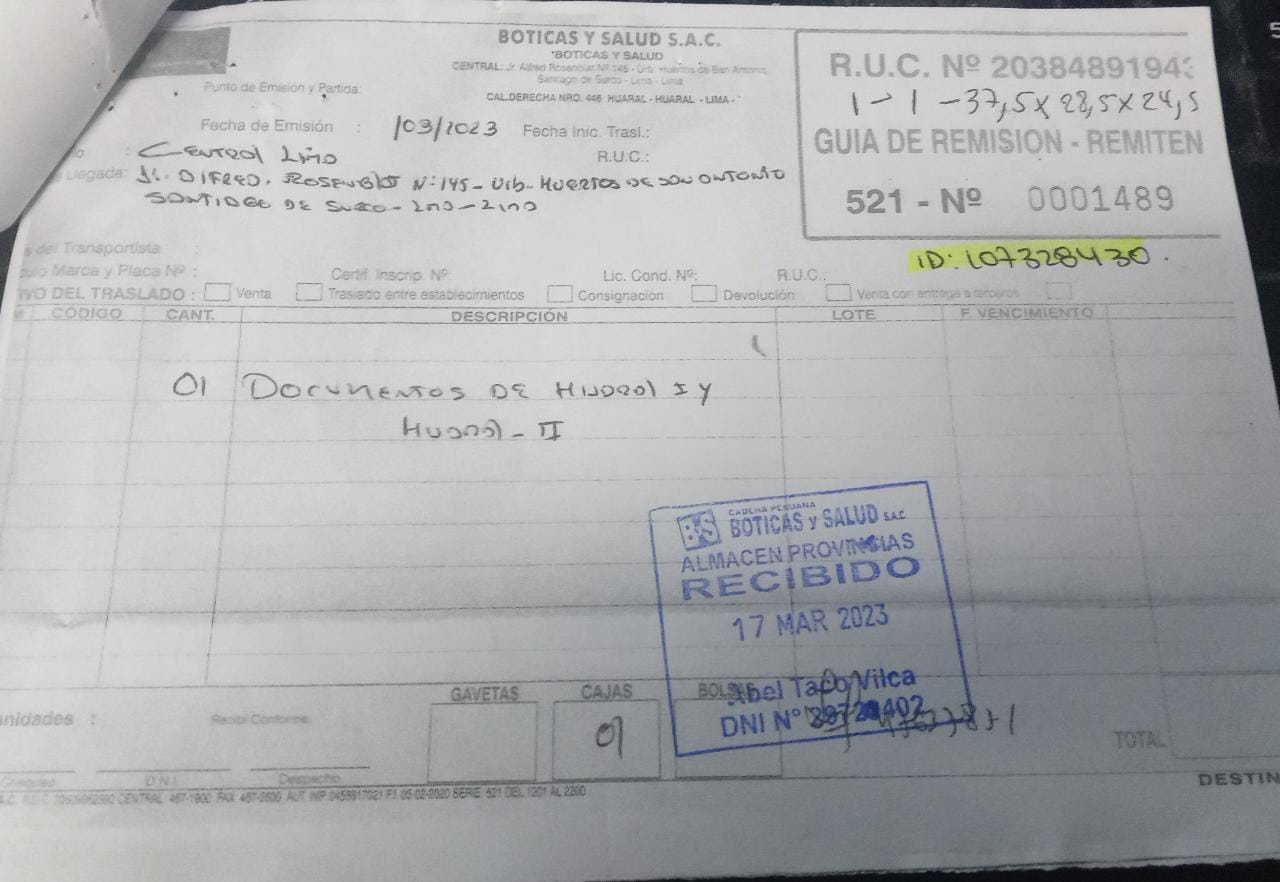 BOTICAS Y SALUD S.A.C.
"BOTICAS Y SALUD
CENTRAL: Jr. Alfred Rosenblat Nº 145 - Urb. Huertos de San Antonio
Santiago de Surco - Lima - Lima
Punto de Emisión y Partida:
CAL.DERECHA NRO. 446 HUARAL - HUARAL - LIMA -
R.U.C. Nº 2038489194
1-1-37,5x28,5x24,5
GUIA DE REMISION - REMITEN
521 - Nº 0001489
Fecha de Emisión : /03/2023 Fecha Inic. Trasl.:
: Central Lima R.U.C.:
Llegada: Jr. Alfred. Rosenblat Nº 145 - Urb. Huertos de San Antonio
Santiago de Surco - Lima - Lima
ID: 107328430.
del Transportista :
Marca y Placa Nº : Certif. Inscrip. Nº: Lic. Cond. Nº: R.U.C.:
VO DEL TRASLADO : Venta Traslado entre establecimientos Consignación Devolución Venta con entrega a terceros
CÓDIGO CANT. DESCRIPCIÓN LOTE F. VENCIMIENTO
01 Documentos de Huaral I y
Huaral - II
BS CADENA PERUANA
BOTICAS y SALUD SAC
ALMACEN PROVINCIAS
RECIBIDO
17 MAR 2023
Abel Taco Vilca
DNI Nº
GAVETAS CAJAS
01
nidades : Recibí Conforme
TOTAL
D.N.I. Despacho
DESTIN
CENTRAL 467-1900 FAX 467-2600 AUT. IMP. 0458817021 F.I. 05-02-2020 SERIE 521 DEL 1201 AL 2200